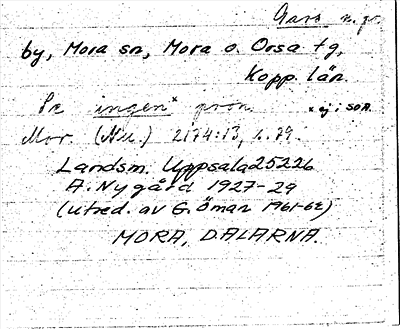 Gars n. pr.
by, Mora sn, Mora o. Orsa tg,
Kopp. län.
Se ingen* pron. *ej i SOA
Mor. (Nu.) 2174:13, s. 79.
Landsm. Uppsala 25226
A. Nygård 1927-29
(utred. av G. Öman 1961-62)
MORA, DALARNA.